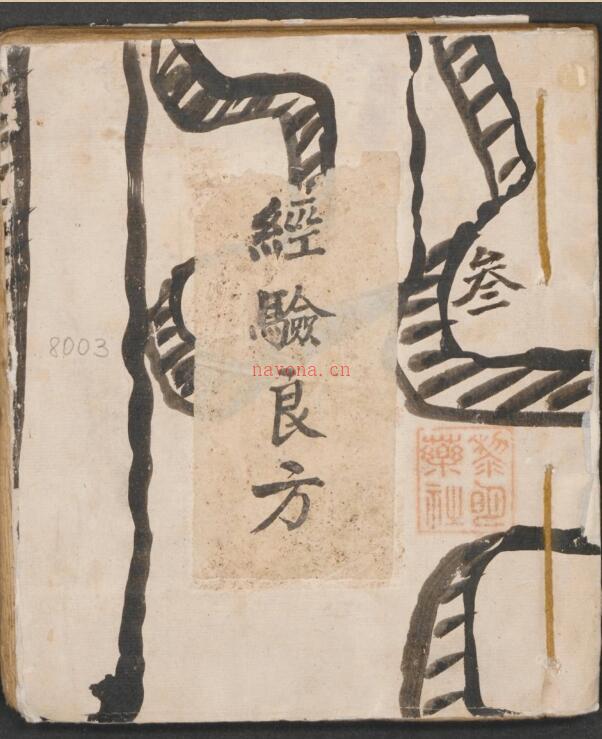 經驗良方
叁
8003
nayona.cn